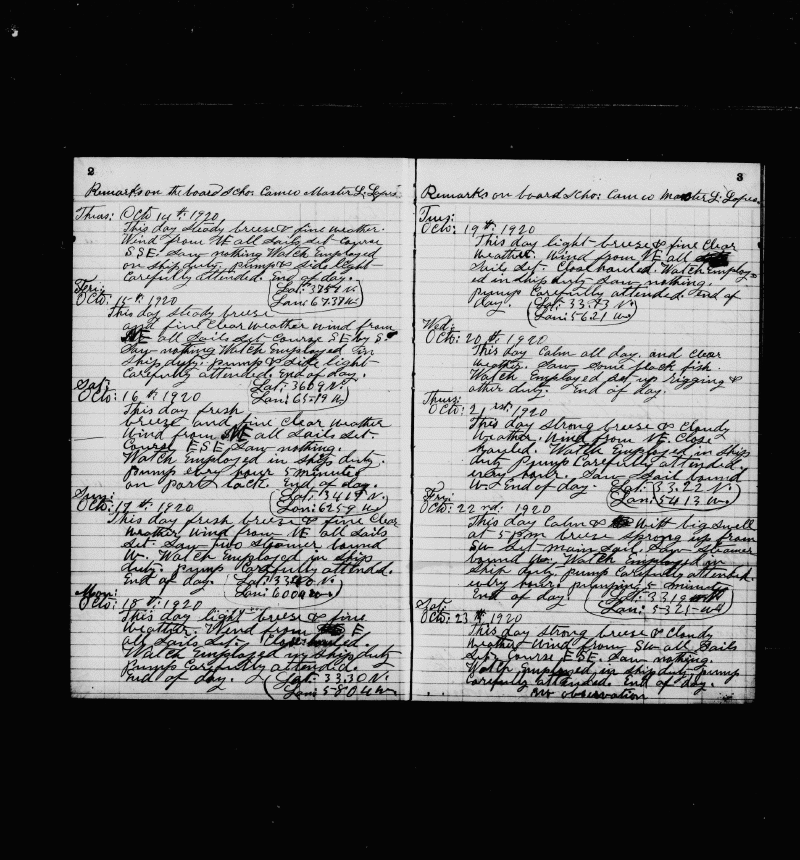 2
Remarks on the board Scho: Cameo Master L: Lopes
Thurs: Octo 14 th. 1920
This day steady breese & fine weather.
Wind from NE all Sails Set Course
SSE. Saw nothing Watch Employed
on Ship duty. Pump & Side light
Carefully attended. End of day.
Lat: 3757 N.
Lon: 6737 W.
Fri:
Octo: 15 th 1920
This day Steady breese
and fine Clear Weather Wind from
NE all Sails Set Course SE by S.
Saw nothing Watch Employed in
Ship duty. Pump & Side light
Carefully attended. End of day.
Lat: 3609 N.
Lon: 65-19 W
Sat:
Octo: 16 th. 1920
This day fresh
breeze and fine Clear Weather
Wind from NE all Sails Set
Course ESE. Saw nothing.
Watch Employed in Ship duty.
Pump every hour 5 minutes
on Port tack. End of day.
Lat: 3
Lon: 6259 W
Sun:
Octo: 17 th. 1920
This day fresh breese & fine Clear
Weather Wind from NE all Sails
Set Saw two Steamer bound
W. Watch Employed in Ships
duty. Pump Carefully attended.
End of day.
Lat: 33
Lon: 600 W
Mon:
Octo: 18 th. 1920
This day light breese & fine
Weather. Wind from E
all Sails Set. Close hauled.
Watch Employed in Ship duty
Pump Carefully attended.
End of day.
Lat: 33.30 N.
Lon: 5804 W
3
Remarks on board Scho: Cameo Master L: Lopes
Tues:
Octo: 19 th. 1920
This day light breese & fine Clear
Weather. Wind from NE all
Sails Set. Close hauled. Watch Employ
ed in Ship duty Saw nothing.
Pump Carefully attended. End of
day.
Lat: 33.23 N.
Lon: 5621 W
Wed:
Octo: 20 th. 1920
This day Calm all day. and Clear
Weather. Saw Some black fish.
Watch Employed Set up rigging &
other duty. End of day.
Thurs:
Octo: 21 rst. 1920
This day Strong breese & Cloudy
Weather. Wind from NE. Close
hauled. Watch Employed in Ship
duty Pump Carefully attended.
every hour. Saw Sail bound
W. End of day.
Lat: 33.22 N.
Lon: 5413 W.
Fri:
Octo: 22 nd. 1920
This day Calm & Witt big Swell
at 5 Pm breese Sprong up from
SW Set main Sail. Saw Steamer
bound Watch Employed on
Ship duty. Pump Carefully attended.
every hour pumping 5 minutes
End of day.
Lat: 3319
Lon: 5325 W
Sat:
Octo: 23 rd 1920
This day Strong breese & Cloudy
Weather Wind from SW all Sails
Set Course ESE. Saw nothing.
Watch Employed in Ship duty pump
Carefully attended. End of day.
no observation